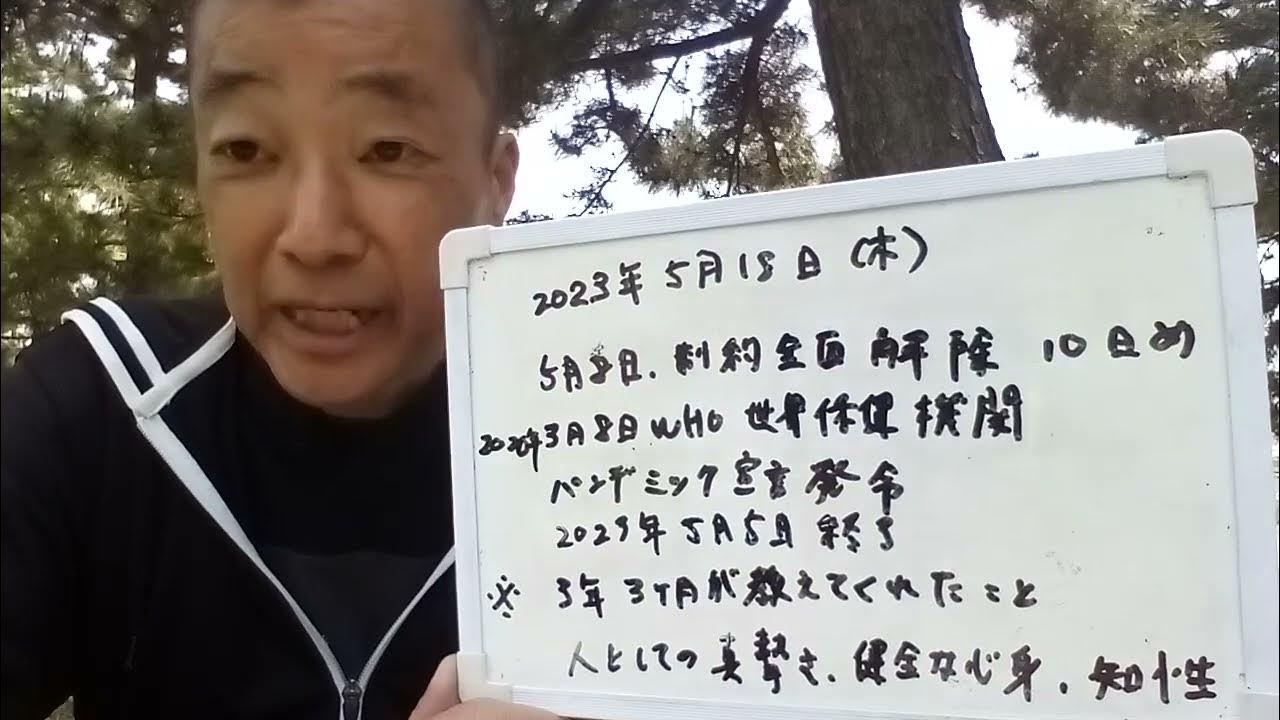 2023年5月18日(木)
5月8日、制約全面解除 10日め
2020年3月8日WHO 世界保健機関
パンデミック宣言発令
2023年5月5日 終了
※ 3年3ヶ月が教えてくれたこと
人としての真摯さ、健全な心身、知性